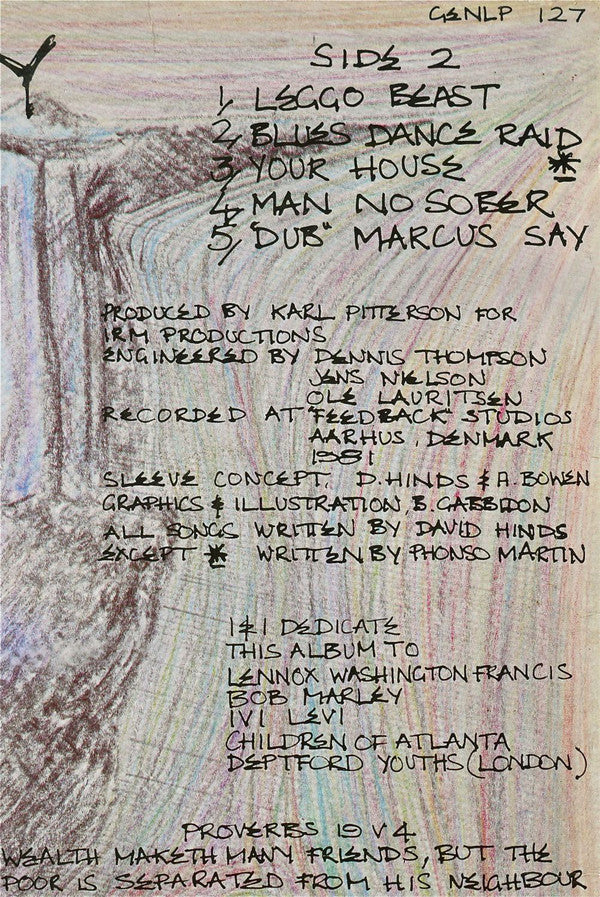 GENLP 127
SIDE 2
1, LEGGO BEAST
2, BLUES DANCE RAID
3, YOUR HOUSE *
4, MAN NO SOBER
5, "DUB" MARCUS SAY
PRODUCED BY KARL PITTERSON FOR
IRM PRODUCTIONS
ENGINEERED BY DENNIS THOMPSON
JENS NIELSON
OLE LAURITSEN
RECORDED AT "FEEDBACK" STUDIOS
AARHUS, DENMARK
1981
SLEEVE CONCEPT, D. HINDS & A. BOWEN
GRAPHICS & ILLUSTRATION, B. GABBIDON
ALL SONGS WRITTEN BY DAVID HINDS
EXCEPT * WRITTEN BY PHONSO MARTIN
I & I DEDICATE
THIS ALBUM TO
LENNOX WASHINGTON FRANCIS
BOB MARLEY
IVI LEVI
CHILDREN OF ATLANTA
DEPTFORD YOUTHS (LONDON)
PROVERBS 19 V 4
WEALTH MAKETH MANY FRIENDS, BUT THE
POOR IS SEPARATED FROM HIS NEIGHBOUR